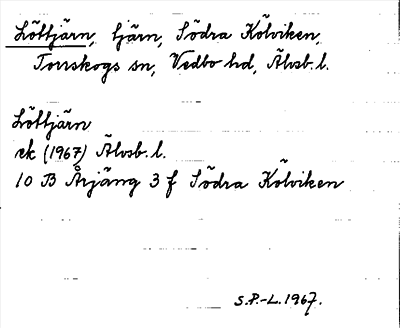 Löttjärn, tjärn, Södra Kölviken,
Torrskogs sn, Vedbo hd, Älvsb. l.
Löttjärn
ek (1967) Älvsb. l.
10 B Årjäng 3 f Södra Kölviken
S.P.-L. 1967.